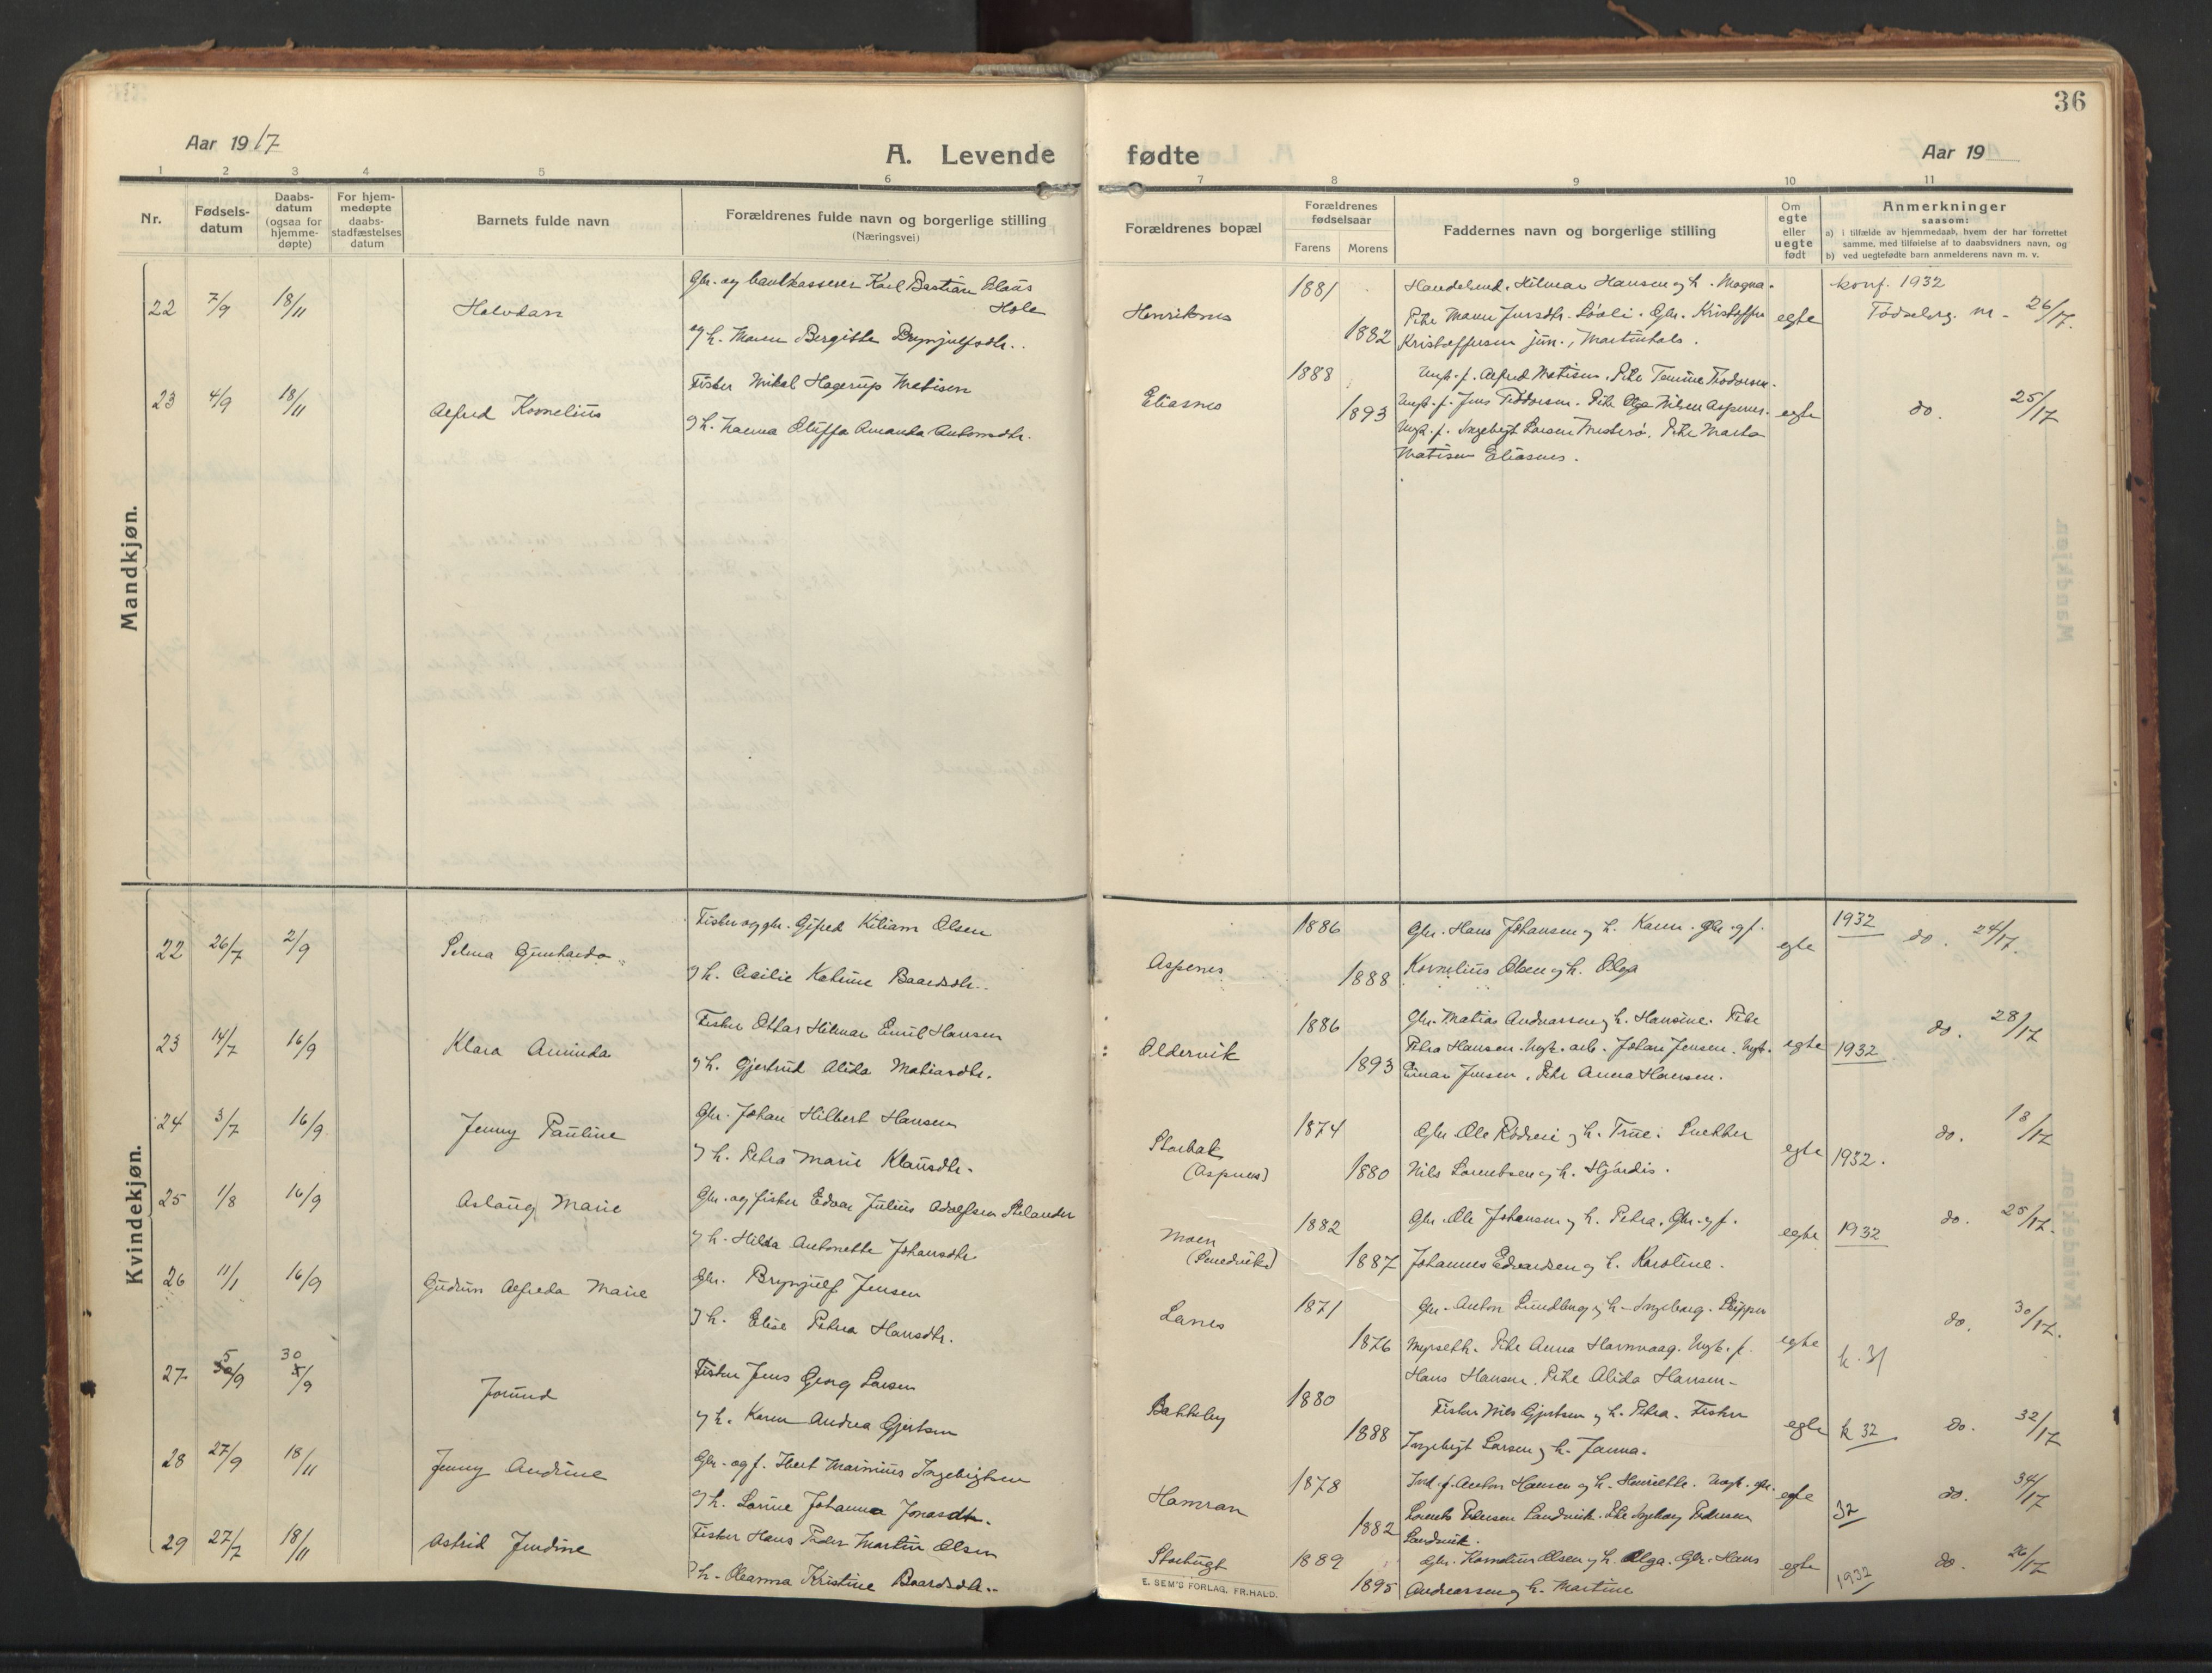 36
Aar 1917
A. Levende fødte
Aar 19
1 2 3 4 5 6 7 8 9 10 11
Nr.
Fødsels-
datum
Daabs-
datum
(ogsaa for
hjemme-
døpte)
For hjem-
medøpte
daabs-
stadfæstelses
datum
Barnets fulde navn
Forældrenes fulde navn og borgerlige stilling
(Næringsvei)
Forældrenes bopæl
Forældrenes
fødselsaar
Farens Morens
Faddernes navn og borgerlige stilling
Om
egte
eller
uegte
født
Anmerkninger
saasom:
a) i tilfælde av hjemmedaab, hvem der har forrettet
samme, med tilføielse af to daabsvidners navn, og
b) ved uegtefødte barn anmelderens navn m. v.
Mandkjøn.
22 7/9 18/11 Halvdan
Gbr. og bankkasserer Karl Bastian Claus
Hole
og h. Maren Bergitte Brynjulfsdtr.
Henriknes
1881
1882
Handelsmd. Hilmar Hansen og h. Magna.
Pike Maren Jensdtr. Gbr. Kristoffer
Kristoffersen jun., Martinhals.
egte
konf. 1932
Fødselsg. nr. 26/17.
23 4/9 18/11 Alfred Kornelius
Fisker Mikal Hagerup Matisen
og h. Oluffa Amanda Antonsdtr.
Eliasnes
1888
1893
Ungk. f. Alfred Matisen. Pike
Ungk. f. Jens Pike Olga Nilsen Aspenes.
Ungk. f. Ingebrigt Larsen Pike Marta
Matisen Eliasnes.
egte
do. 25/17
Kvindekjøn.
22 26/7 2/9 Selma Gunharda
Fisker og gbr. Gifred Kiliam Olsen
og h. Cecilie Katrine Baardsdtr.
Aspenes
1886
1888
Gbr. Hans Johansen og h. Karen. Gbr. og f.
Kornelius Olsen og h. Olga
egte
1932 do. 24/17.
23 14/7 16/9 Klara Aminda
Fisker Ottar Hilmar Emil Hansen
og h. Gjertrud Alida Matiasdtr.
Oldervik
1886
1893
Gbr. Matias Andreassen og h. Hansine. Pike
Petra Hansen. Ungk. arb. Johan Jensen. Ungk.
Einar Jensen. Pike Anna Hansen.
egte
1932 do. 28/17
24 3/7 16/9 Jenny Pauline
Gbr. Johan Hilbert Hansen
og h. Petra Marie Klausdtr.
Storbak
(Aspenes)
1874
1880
Gbr. Ole og h. Trine. Snekker
Nils Lorentsen og h. Hjördis.
egte
1932. do. 18/17
25 1/8 16/9 Aslaug Marie
Gbr. og fisker Edvar Julius Adolfsen Stelander
og h. Hilda Antonette Johansdtr.
Moen
1882
1887
Gbr. Ole Johansen og h. Petra. Gbr. og f.
Johannes Edvardsen og h. Karoline.
egte
1932 do. 25/17.
26 11/1 16/9 Gudrun Alfreda Marie
Gbr. Brynjulf Jensen
og h. Elise Petrea Hansdtr.
Lanes
1871
1876
Gbr. Anton Lundberg og h. Ingeborg. Skipper
Myrseth. Pike Anna Havnvaag. Ungk. f.
Hans Hansen. Pike Alida Hansen.
egte
k. 31 do. 30/17.
27 5/9 30/9 Jorund
Fisker Jens Georg Larsen
og h. Karen Andrea Gjertsen
Bakkeby
1880
1888
Fisker Nils Gjertsen og h. Petra. Fisker
Ingebrigt Larsen og h. Janna.
egte
k 32 do. 32/17
28 27/9 18/11 Jenny Andrine
Gbr. og f. Ibert Marinius Ingebrigtsen
og h. Lorine Johanna Jonasdtr.
Hamran
1878
1882
Ind. f. Anton Hansen og h. Henriette. Ungk. gbr.
Lorents Pedersen Sandvik. Pike Ingeborg Pedersen
Sandvik.
egte
32 do. 34/17
29 27/7 18/11 Astrid Jendine
Fisker Hans Peder Martin Olsen
og h. Oleanna Kristine Baardsdtr.
Storbugt
1889
1895
Gbr. Kornelius Olsen og h. Olga. Gbr. Hans
Andreassen og h. Martine
egte
1932 do. 26/17
E. SEM'S FORLAG, FR.HALD.